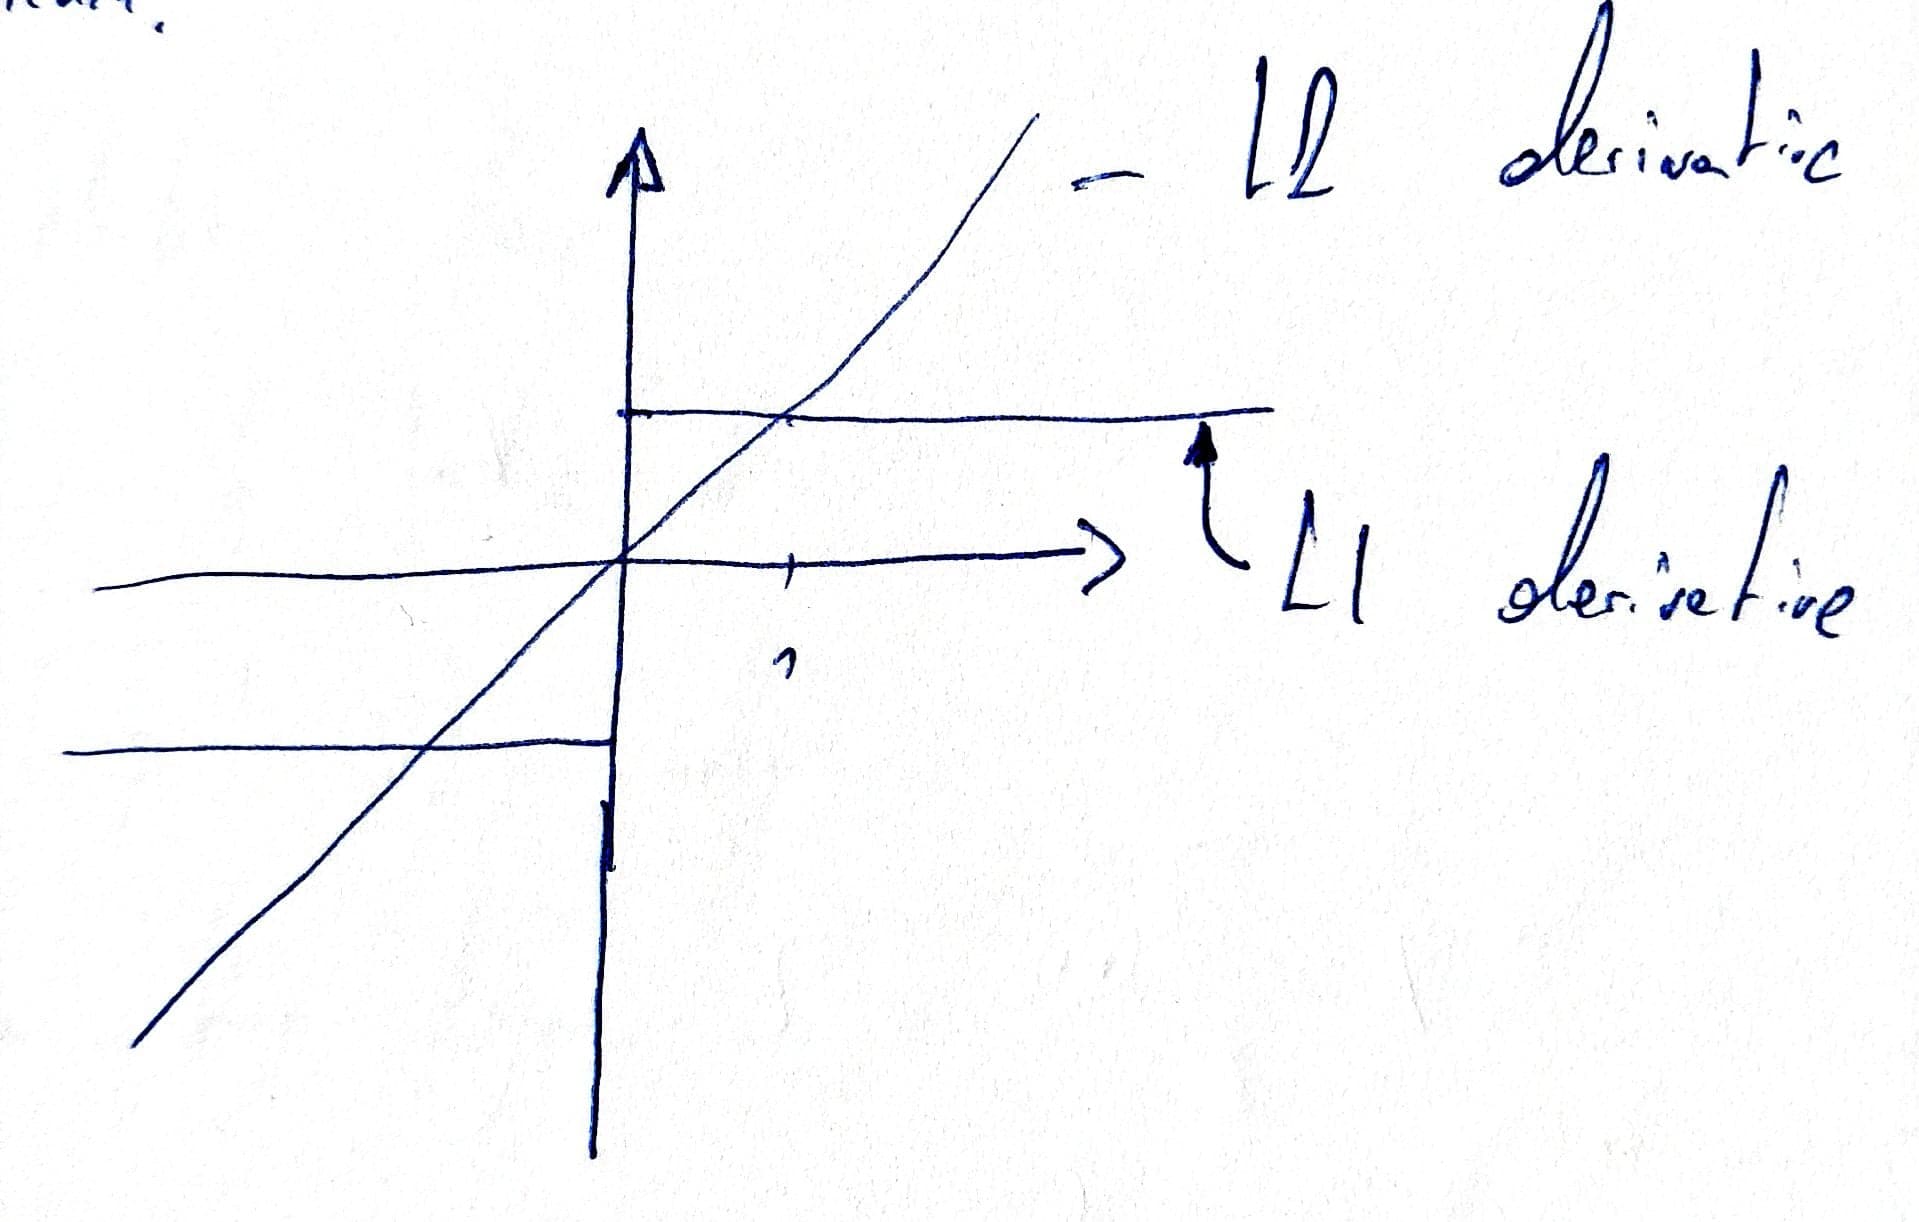 L2 derivative
L1 derivative
1